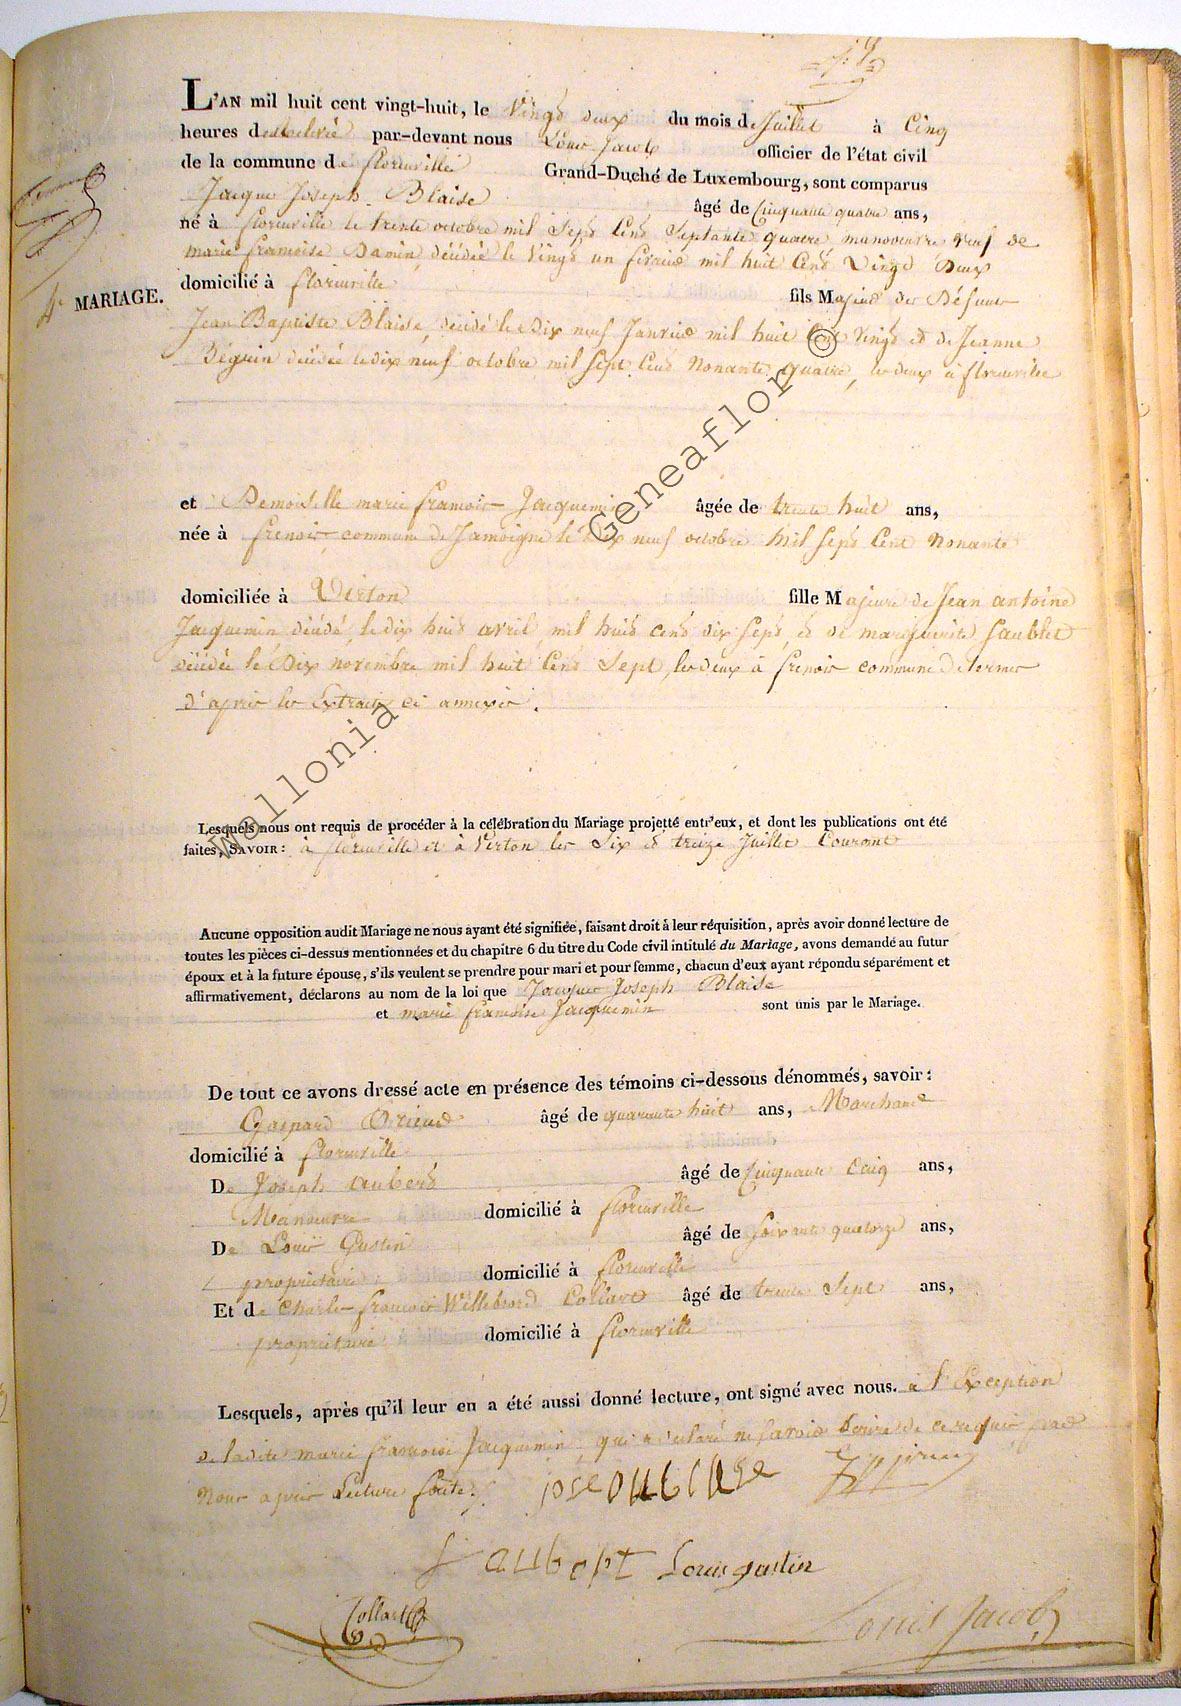 L'AN mil huit cent vingt-huit, le Vingt deux du mois de Juillet à Cinq
heures de par-devant nous Louis Jacob officier de l'état civil
de la commune de florenville Grand-Duché de Luxembourg, sont comparus
Jacque Joseph Blaise âgé de Cinquante quatre ans,
né à florenville le trente octobre mil Sept Cent Septante quatre manoeuvre veuf de
marie francoise Damin, décédée le Vingt un fevrier mil huit Cent Vingt Deux
MARIAGE.
domicilié à florenville fils Majeur des Défunts
Jean Baptiste Blaise, décédé le Dix neuf Janvier mil huit Cent Vingt et de Jeanne
Béguin décédée le dix neuf octobre mil Sept Cent Nonante quatre, les deux à florenville
et Demoiselle marie francoise Jacquemin âgée de trente huit ans,
née à frenois commune de Jamoigne le Dix neuf octobre mil Sept Cent Nonante
domiciliée à Virton fille Majeure de Jean antoine
Jacquemin décédé le dix huit avril mil huit Cent dix Sept, et de marguerite Saublet
décédée le Dix novembre mil huit Cent Sept, les deux à frenois commune de termes
d'après les Extraits ci annexés.
Lesquels nous ont requis de procéder à la célébration du Mariage projetté entr'eux, et dont les publications ont été
faites, SAVOIR: à florenville et à Virton les Six et treize Juillet Courant
Aucune opposition audit Mariage ne nous ayant été signifiée, faisant droit à leur réquisition, après avoir donné lecture de
toutes les pièces ci-dessus mentionnées et du chapitre 6 du titre du Code civil intitulé du Mariage, avons demandé au futur
époux et à la future épouse, s'ils veulent se prendre pour mari et pour femme, chacun d'eux ayant répondu séparément et
affirmativement, déclarons au nom de la loi que Jacque Joseph Blaise
et marie francoise Jacquemin sont unis par le Mariage.
De tout ce avons dressé acte en présence des témoins ci-dessous dénommés, savoir:
Gaspard âgé de quarante huit ans, Marchand
domicilié à florenville
De Joseph aubert âgé de Cinquante Cinq ans,
Manoeuvre domicilié à florenville
De Louis Gustin âgé de Soixante quatorze ans,
propriétaire domicilié à florenville
Et de Charle francois Willebrord Collart âgé de trente Sept ans,
propriétaire domicilié à florenville
Lesquels, après qu'il leur en a été aussi donné lecture, ont signé avec nous. à l'Exception
de ladite marie francoise Jacquemin qui a declaré ne Savoir Ecrire de ce requis par
Nous après Lecture faite.
J aubert Louis gustin
Collart
Louis Jacob
Wollonia Geneaflor ©